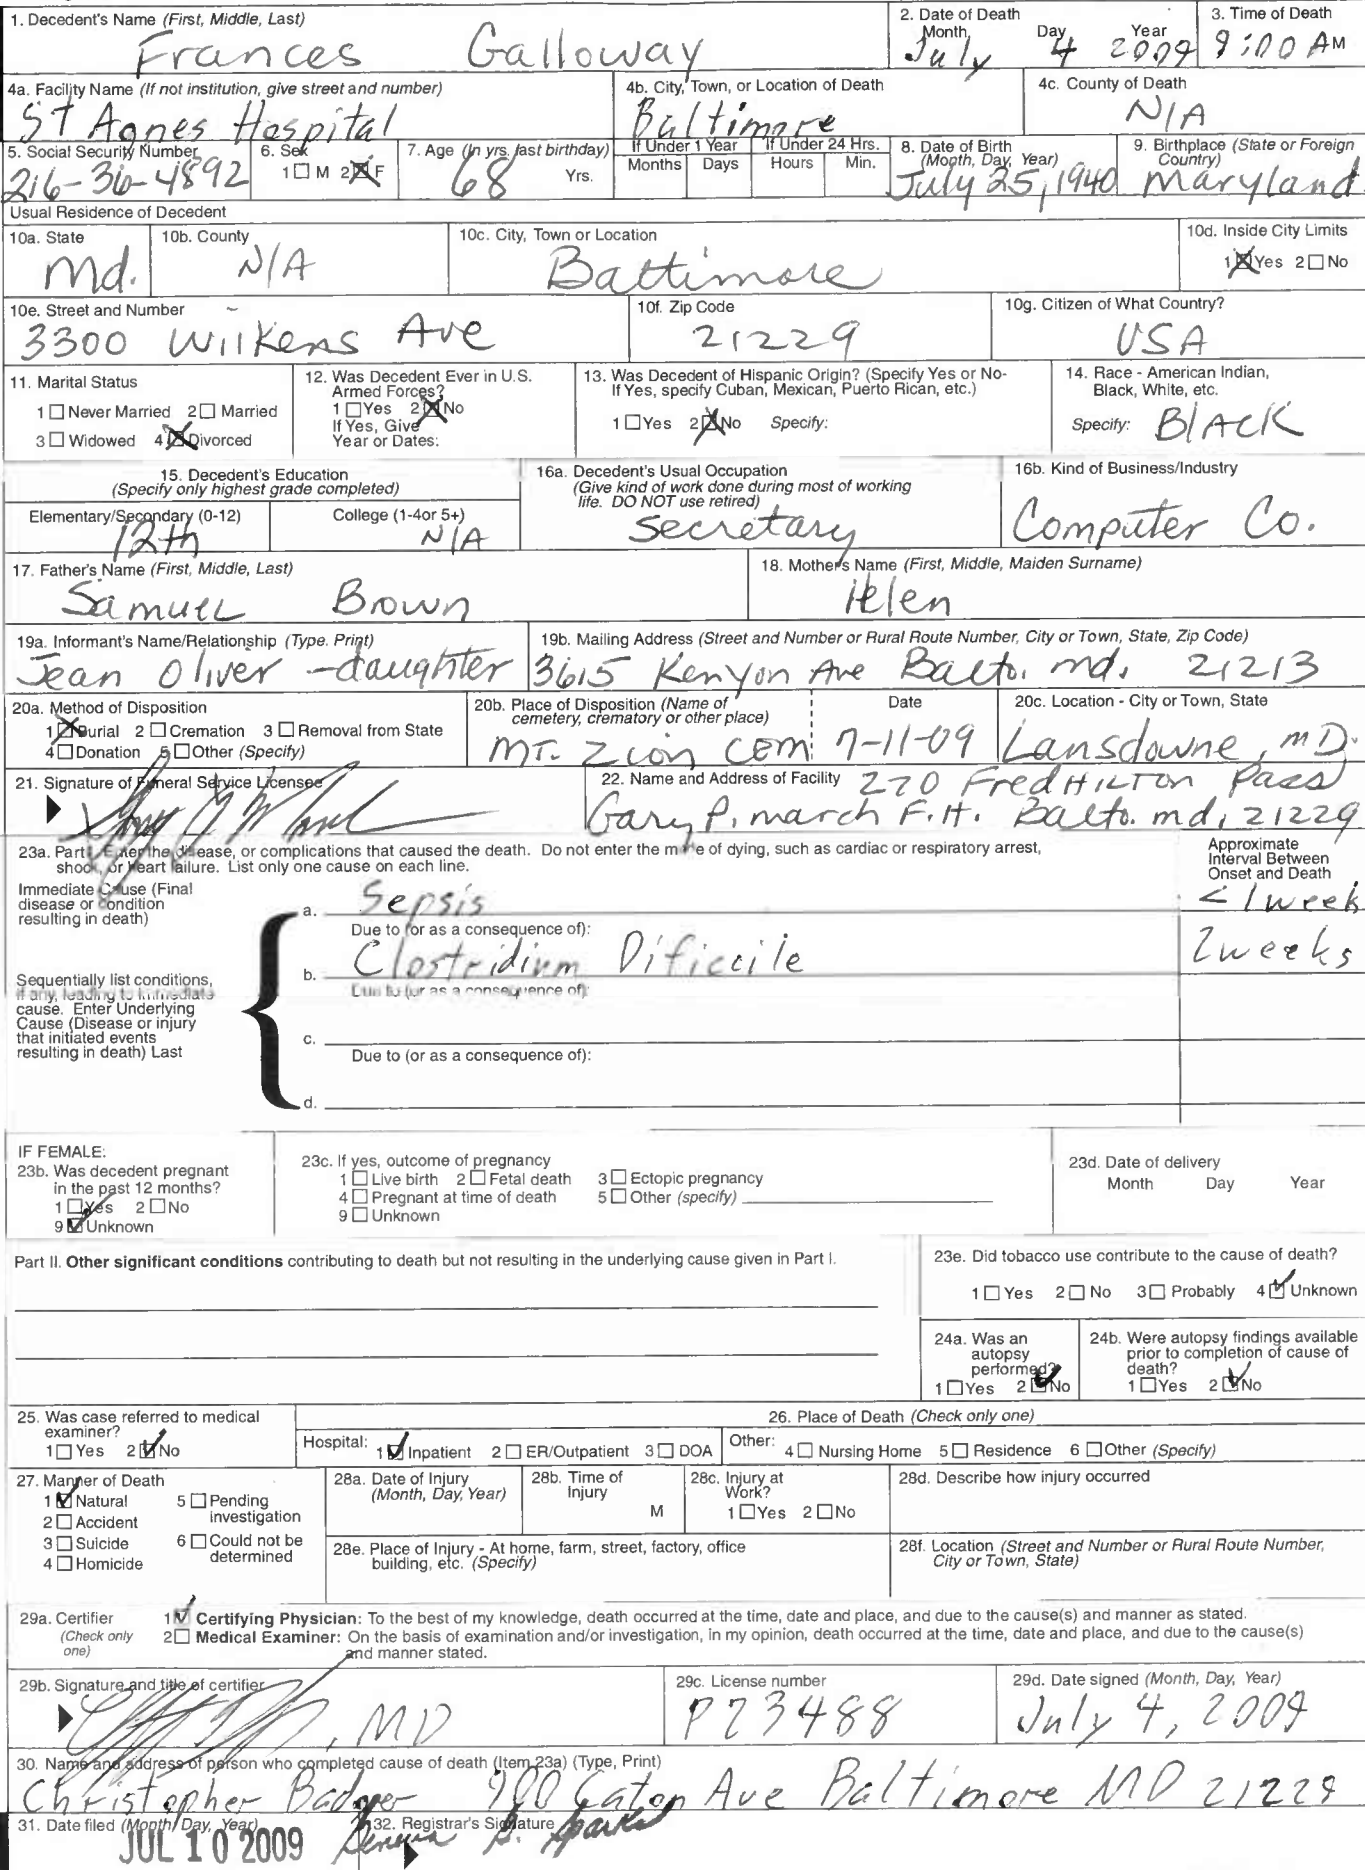 1. Decedent's Name (First, Middle, Last) Frances Galloway
2. Date of Death Month Day Year July 4 2009
3. Time of Death 9:00 AM
4a. Facility Name (If not institution, give street and number) St Agnes Hospital
4b. City, Town, or Location of Death Baltimore
4c. County of Death N/A
5. Social Security Number 216-36-4892
6. Sex 1 ☐ M 2 ☒ F
7. Age (In yrs. last birthday) 68 Yrs.
If Under 1 Year Months Days
If Under 24 Hrs. Hours Min.
8. Date of Birth (Month, Day, Year) July 25, 1940
9. Birthplace (State or Foreign Country) Maryland
Usual Residence of Decedent
10a. State Md.
10b. County N/A
10c. City, Town or Location Baltimore
10d. Inside City Limits 1 ☒ Yes 2 ☐ No
10e. Street and Number 3300 Wilkens Ave
10f. Zip Code 21229
10g. Citizen of What Country? USA
11. Marital Status
1 ☐ Never Married 2 ☐ Married
3 ☐ Widowed 4 ☒ Divorced
12. Was Decedent Ever in U.S. Armed Forces?
1 ☐ Yes 2 ☒ No
If Yes, Give Year or Dates:
13. Was Decedent of Hispanic Origin? (Specify Yes or No- If Yes, specify Cuban, Mexican, Puerto Rican, etc.)
1 ☐ Yes 2 ☒ No Specify:
14. Race - American Indian, Black, White, etc.
Specify: Black
15. Decedent's Education (Specify only highest grade completed)
Elementary/Secondary (0-12) 12th
College (1-4or 5+) N/A
16a. Decedent's Usual Occupation (Give kind of work done during most of working life. DO NOT use retired) Secretary
16b. Kind of Business/Industry Computer Co.
17. Father's Name (First, Middle, Last) Samuel Brown
18. Mother's Name (First, Middle, Maiden Surname) Helen
19a. Informant's Name/Relationship (Type. Print) Jean Oliver - daughter
19b. Mailing Address (Street and Number or Rural Route Number, City or Town, State, Zip Code) 3615 Kenyon Ave Balto. md. 21213
20a. Method of Disposition
1 ☒ Burial 2 ☐ Cremation 3 ☐ Removal from State
4 ☐ Donation 5 ☐ Other (Specify)
20b. Place of Disposition (Name of cemetery, crematory or other place) Mt. Zion Cem
Date 7-11-09
20c. Location - City or Town, State Lansdowne, MD.
21. Signature of Funeral Service Licensee
22. Name and Address of Facility 270 FredHilton Pass
Gary P. march F.H. Balto. md, 21229
23a. Part I. Enter the disease, or complications that caused the death. Do not enter the mode of dying, such as cardiac or respiratory arrest,
shock, or heart failure. List only one cause on each line.
Approximate Interval Between Onset and Death
Immediate Cause (Final disease or condition resulting in death)
a. Sepsis < 1 week
Due to (or as a consequence of):
b. Clostridium Dificcile 2 weeks
Due to (or as a consequence of):
Sequentially list conditions, if any, leading to immediate cause. Enter Underlying Cause (Disease or injury that initiated events resulting in death) Last
c.
Due to (or as a consequence of):
d.
IF FEMALE:
23b. Was decedent pregnant in the past 12 months?
1 ☐ Yes 2 ☐ No
9 ☑ Unknown
23c. If yes, outcome of pregnancy
1 ☐ Live birth 2 ☐ Fetal death 3 ☐ Ectopic pregnancy
4 ☐ Pregnant at time of death 5 ☐ Other (specify)
9 ☐ Unknown
23d. Date of delivery
Month Day Year
Part II. Other significant conditions contributing to death but not resulting in the underlying cause given in Part I.
23e. Did tobacco use contribute to the cause of death?
1 ☐ Yes 2 ☐ No 3 ☐ Probably 4 ☑ Unknown
24a. Was an autopsy performed?
1 ☐ Yes 2 ☑ No
24b. Were autopsy findings available prior to completion of cause of death?
1 ☐ Yes 2 ☑ No
25. Was case referred to medical examiner?
1 ☐ Yes 2 ☑ No
26. Place of Death (Check only one)
Hospital: 1 ☑ Inpatient 2 ☐ ER/Outpatient 3 ☐ DOA
Other: 4 ☐ Nursing Home 5 ☐ Residence 6 ☐ Other (Specify)
27. Manner of Death
1 ☑ Natural 5 ☐ Pending investigation
2 ☐ Accident
3 ☐ Suicide 6 ☐ Could not be determined
4 ☐ Homicide
28a. Date of Injury (Month, Day, Year)
28b. Time of Injury M
28c. Injury at Work?
1 ☐ Yes 2 ☐ No
28d. Describe how injury occurred
28e. Place of Injury - At home, farm, street, factory, office building, etc. (Specify)
28f. Location (Street and Number or Rural Route Number, City or Town, State)
29a. Certifier (Check only one)
1 ☑ Certifying Physician: To the best of my knowledge, death occurred at the time, date and place, and due to the cause(s) and manner as stated.
2 ☐ Medical Examiner: On the basis of examination and/or investigation, in my opinion, death occurred at the time, date and place, and due to the cause(s)
and manner stated.
29b. Signature and title of certifier , MD
29c. License number P23488
29d. Date signed (Month, Day, Year) July 4, 2009
30. Name and address of person who completed cause of death (Item 23a) (Type, Print)
Christopher Badger 900 Caton Ave Baltimore MD 21229
31. Date filed (Month, Day, Year) JUL 10 2009
32. Registrar's Signature